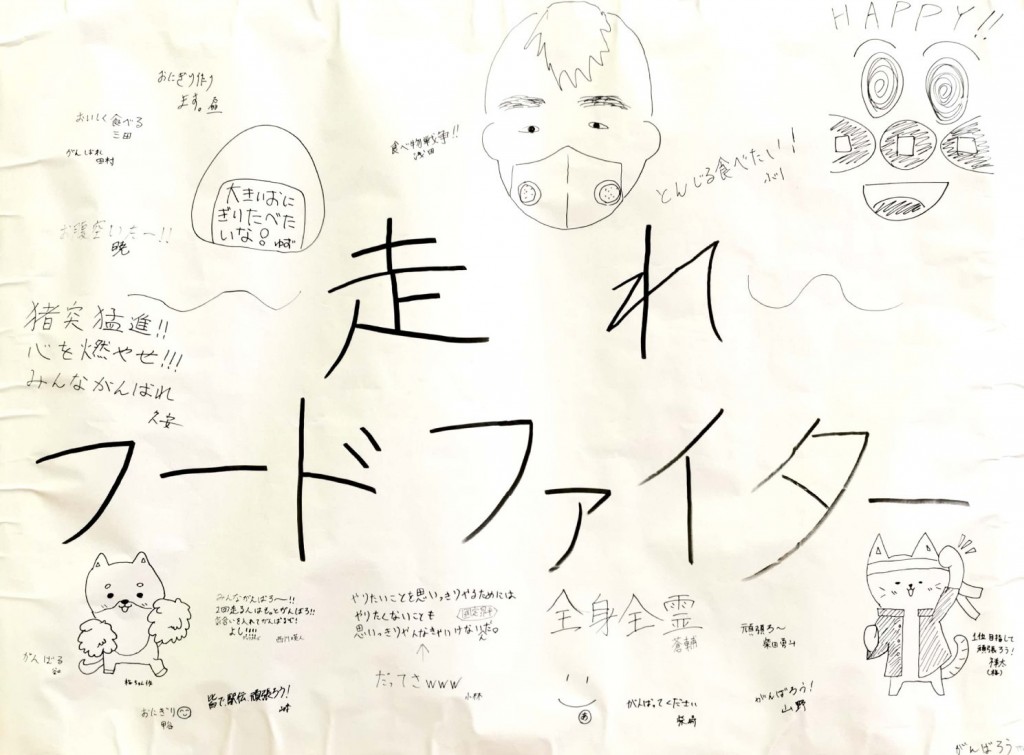 HAPPY!!
おにぎり作り
ます。
おいしく食べる
三田
がんばれ
田村
食べ物戦争!!
浅田
とんじる食べたい!!
大きいおに
ぎりたべた
いな。
ゆず
お腹空いた〜!!
暁
走れ
猪突猛進!!
心を燃やせ!!!
みんながんばれ
久安
フードファイター
みんながんばろ〜!!
2回走る人はもっとがんばろ!!
気合いを入れてがんばるぞ!
よし!!!!
やりたいことを思いっきりやるためには
やりたくないことも
思いっきりやんなきゃいけないんだ。
だってさwww
小林
全身全霊
蒼輔
頑張ろ〜
柴田勇斗
1位目指して
頑張ろう!
がんばる
おたぎり
皆で、駅伝、頑張ろう!
あ
がんばってください
柴崎
がんばろう!
山野
がんばろう